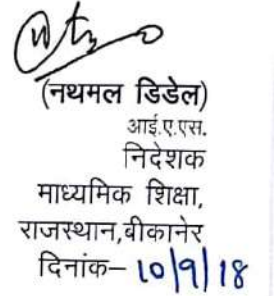 (नथमल डिडेल)
आई.ए.एस.
निदेशक
माध्यमिक शिक्षा,
राजस्थान,बीकानेर
दिनांक– 10/9/18